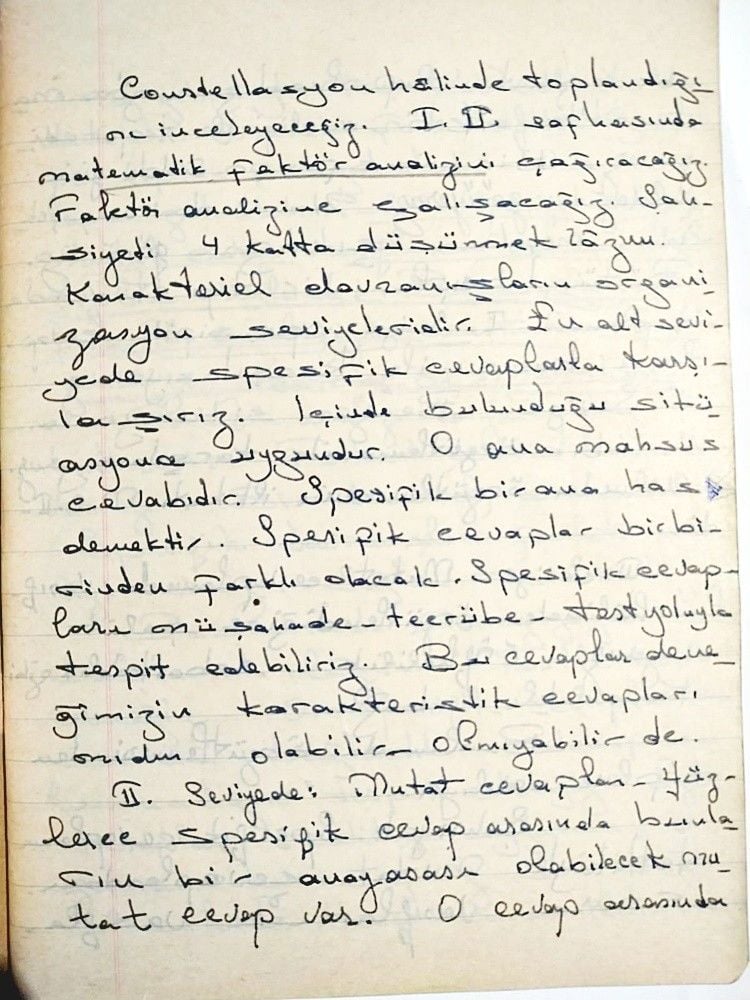 Constellasyon hâlinde toplandığı
nı inceleyeceğiz. I. II. safhasında
matematik faktör analizini çağıracağız.
Faktör analizine çalışacağız. Şah-
siyeti 4 katta düşünmek lâzım.
Karakteriel davranışların organi-
zasyon seviyeleridir. En alt sevi-
yede spesifik cevaplarla karşı-
laşırız. İçinde bulunduğu sitü-
asyona uygundur. O ana mahsus
cevabıdır. Spesifik bir ana has
demektir. Spesifik cevaplar birbi-
rinden farklı olacak. Spesifik cevap-
ları müşahade - tecrübe - test yoluyla
tespit edebiliriz. Bu cevaplar dene-
ğimizin karakteristik cevapları
mıdır olabilir - olmıyabilir de.
II. Seviyede: Mutat cevaplar - Yüz-
lerce spesifik cevap arasında bunla-
rın bir anayasası olabilecek mu-
tat cevap var. O cevap arasında